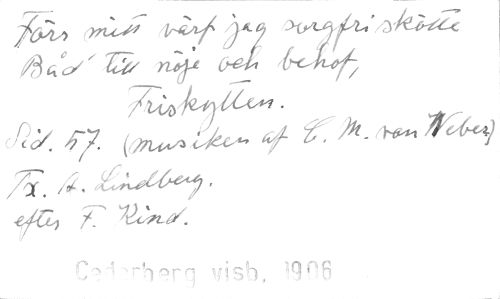 Förs mitt värf jag sorgfri skötte
Båd' till nöje och behof,
Friskytten.
Sid. 57. (musiken af C. M. von Weber)
Tx. A. Lindberg.
efter F. Kind.
Cederberg visb. 1906